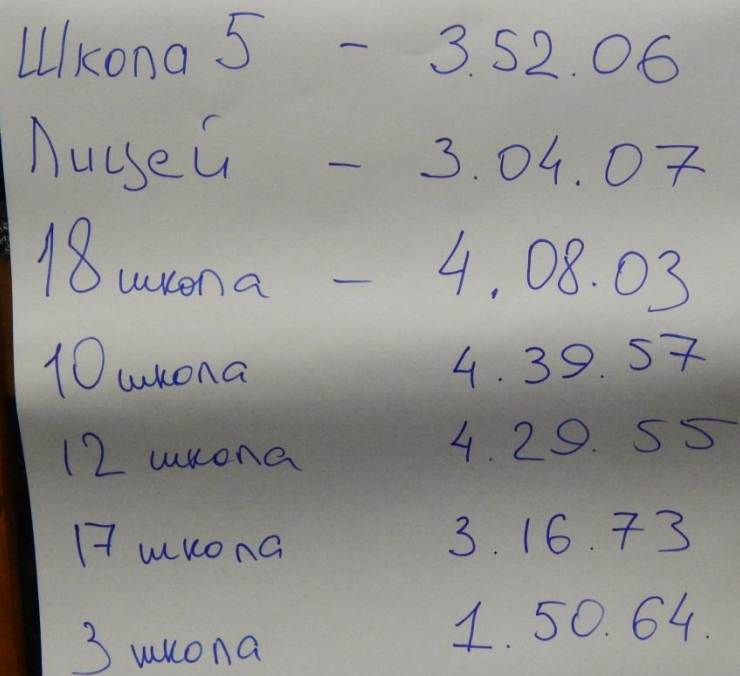 Школа 5 - 3.52.06
Лицей - 3.04.07
18 школа - 4.08.03
10 школа 4.39.57
12 школа 4.29.55
17 школа 3.16.73
3 школа 1.50.64.